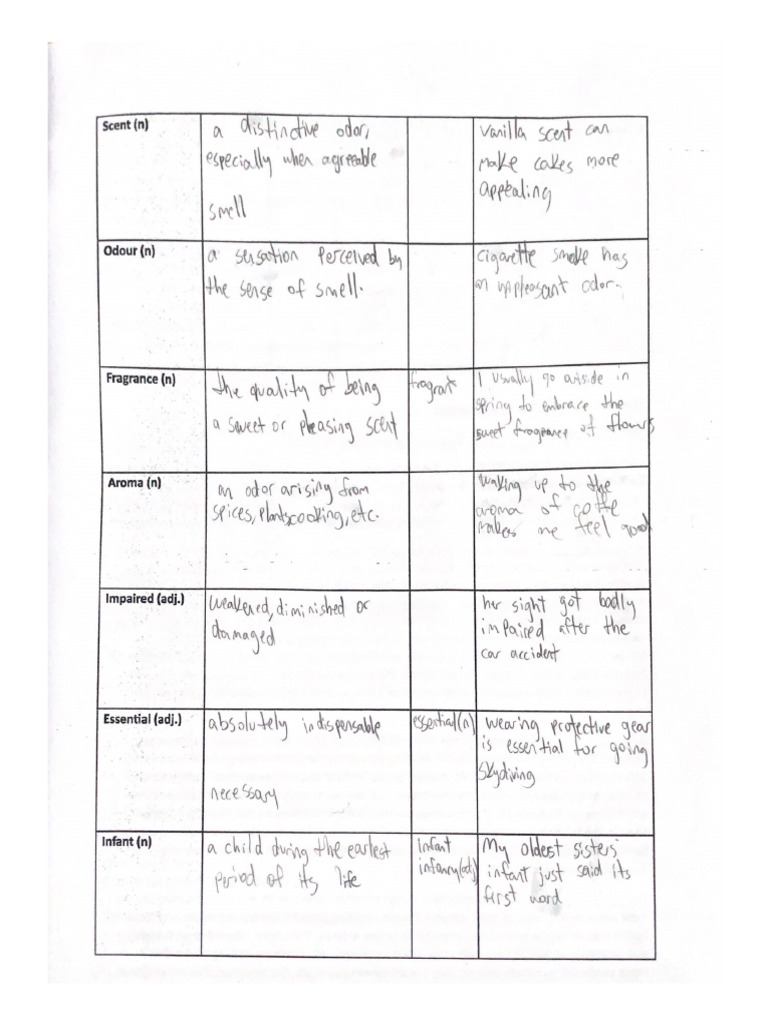 Scent (n)
a distinctive odor,
especially when agreeable
smell
vanilla scent can
make cakes more
appealing
Odour (n)
a sensation perceived by
the sense of smell.
cigarette smoke has
an unpleasant odor.
Fragrance (n)
the quality of being
a sweet or pleasing scent
fragrant
I usually go outside in
spring to embrace the
sweet fragrance of flowers
Aroma (n)
an odor arising from
spices, plants cooking, etc.
waking up to the
aroma of coffe
makes me feel good
Impaired (adj.)
weakened, diminished or
damaged
her sight got badly
impaired after the
car accident
Essential (adj.)
absolutely indispensable
necessary
essential(n)
wearing protective gear
is essential for going
skydiving
Infant (n)
a child during the earliest
period of its life
infant
infancy(adj)
My oldest sisters'
infant just said its
first word